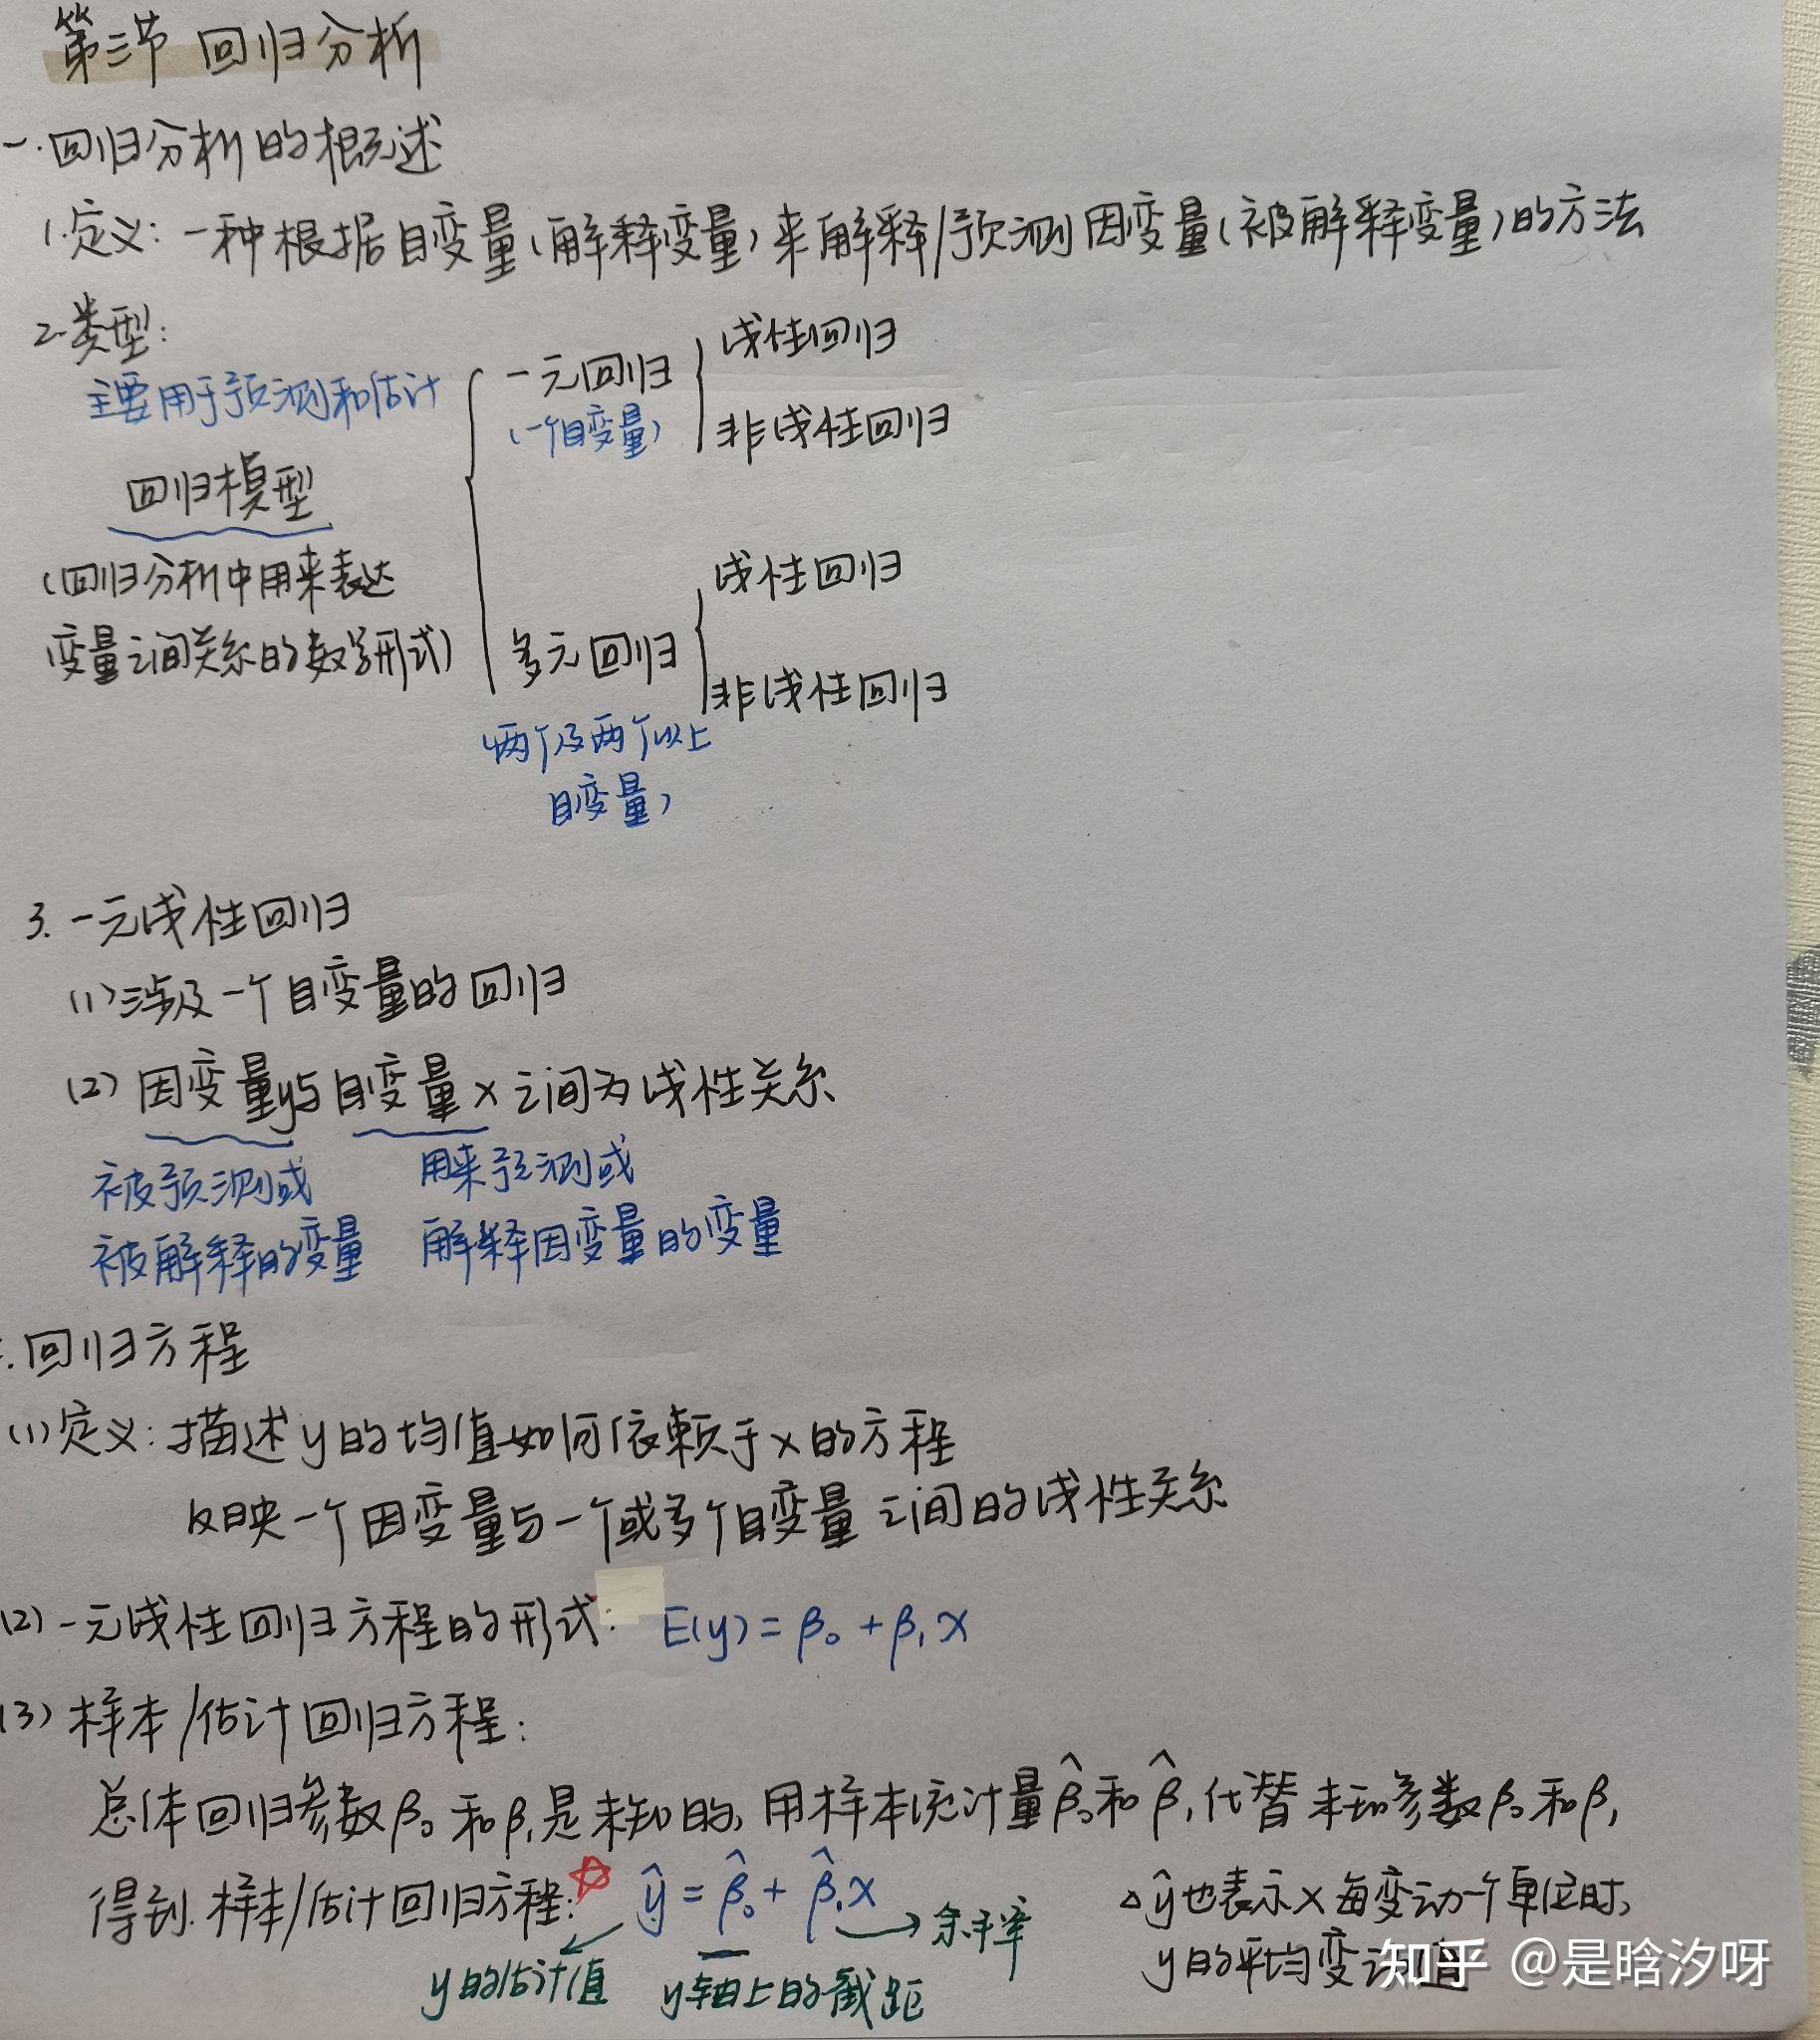 第三节 回归分析
一.回归分析的概述
1.定义:一种根据自变量(解释变量)来解释/预测因变量(被解释变量)的方法
2.类型:
主要用于预测和估计
回归模型
(回归分析中用来表达
变量之间关系的数学形式)
一元回归
(一个自变量)
线性回归
非线性回归
多元回归
(两个及两个以上
自变量)
线性回归
非线性回归
3.一元线性回归
(1)涉及一个自变量的回归
(2)因变量y与自变量x之间为线性关系
被预测或
被解释的变量
用来预测或
解释因变量的变量
.回归方程
(1)定义:描述y的均值如何依赖于x的方程
反映一个因变量与一个或多个自变量之间的线性关系
(2)一元线性回归方程的形式: E(y)=β₀+β₁x
(3)样本/估计回归方程:
总体回归参数β₀和β₁是未知的,用样本统计量β̂₀和β̂₁代替未知参数β₀和β₁
得到.样本/估计回归方程:☆ ŷ=β̂₀+β̂₁x
y的估计值
y轴上的截距
→斜率
△ŷ也表示x每变动一个单位时,
y的平均变动值
知乎 @是晗汐呀